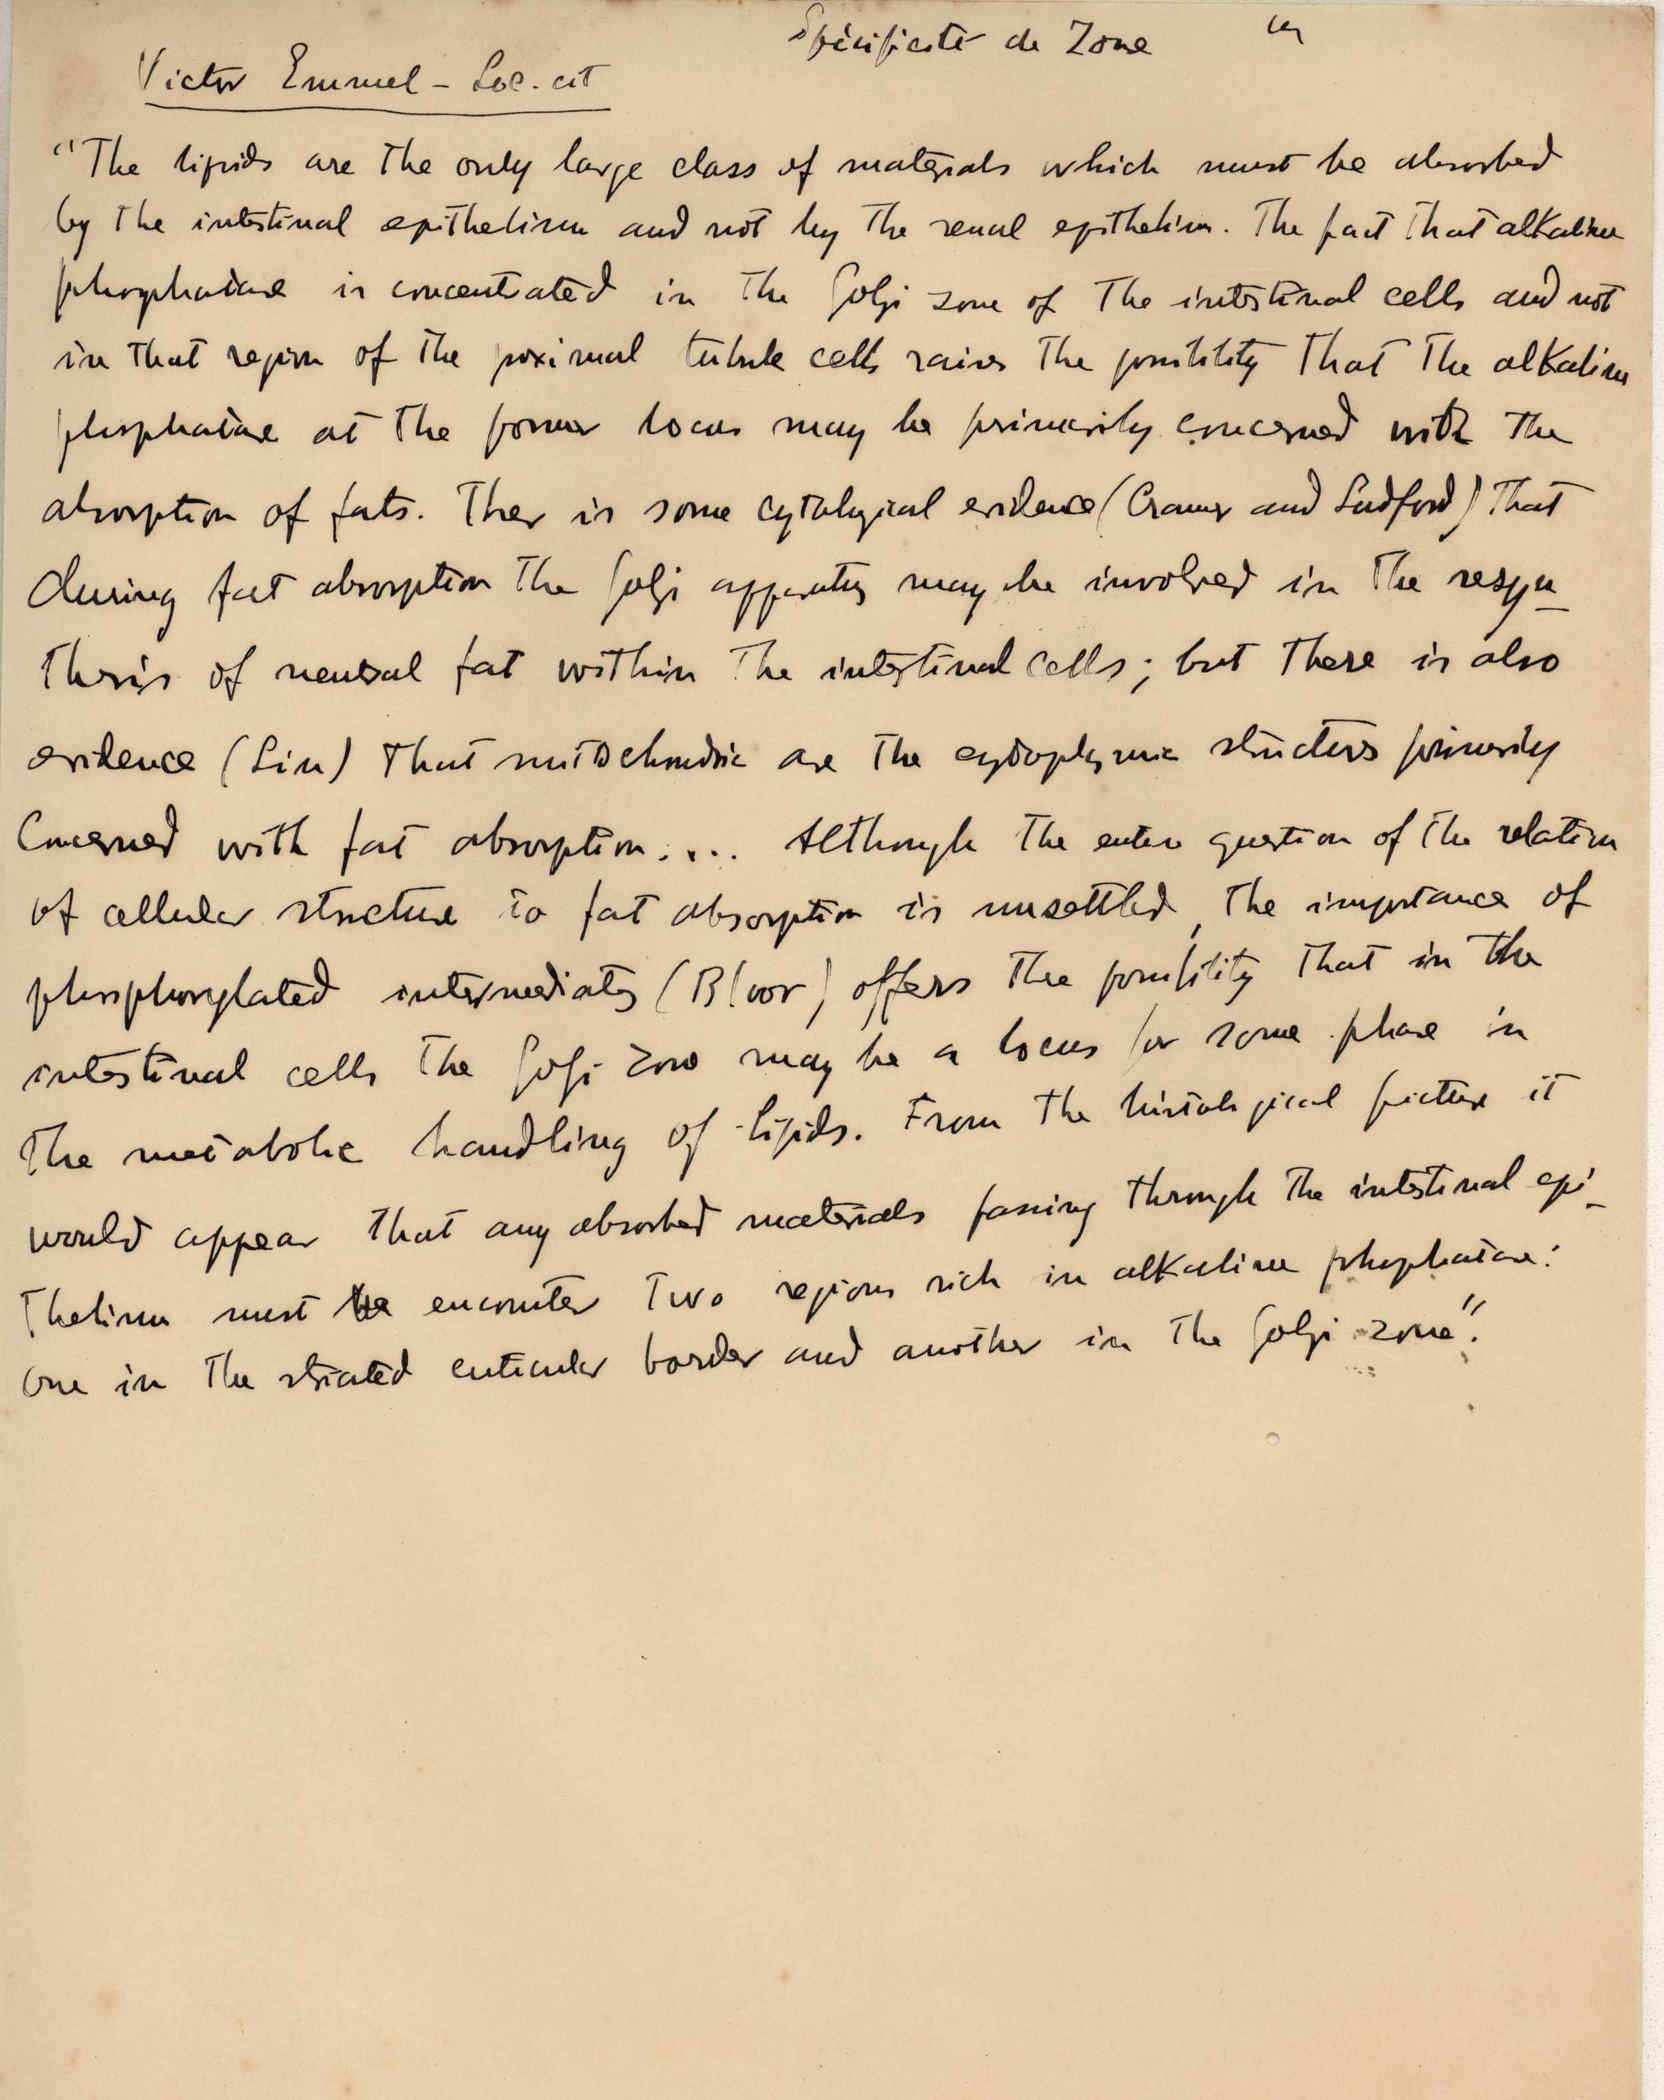 Spécificité de Zone
Victor Emmel - Loc. cit
"The lipids are the only large class of materials which must be absorbed
by the intestinal epithelium and not by the renal epithelium. The fact that alkaline
phosphatase is concentrated in the Golgi zone of the intestinal cells and not
in that region of the proximal tubule cells raises the possibility that the alkaline
phosphatase at the former locus may be primarily concerned with the
absorption of fats. Ther is some cytological evidence (Cramer and Ludford) that
during fat absorption the Golgi apparatus may be involved in the resyn-
thesis of neutral fat within the intestinal cells; but there is also
evidence (Sin) that mitochondria are the cytoplasmic structures primarily
concerned with fat absorption.... Although the entire question of the relation
of cellular structure to fat absorption is unsettled, the importance of
phosphorylated intermediates (Bloor) offers the possibility that in the
intestinal cells the Golgi zone may be a locus for some phase in
the metabolic handling of lipids. From the histological picture it
would appear that any absorbed materials passing through the intestinal epi-
thelium must encounter two regions rich in alkaline phosphatase:
one in the striated cuticular border and another in the Golgi zone".